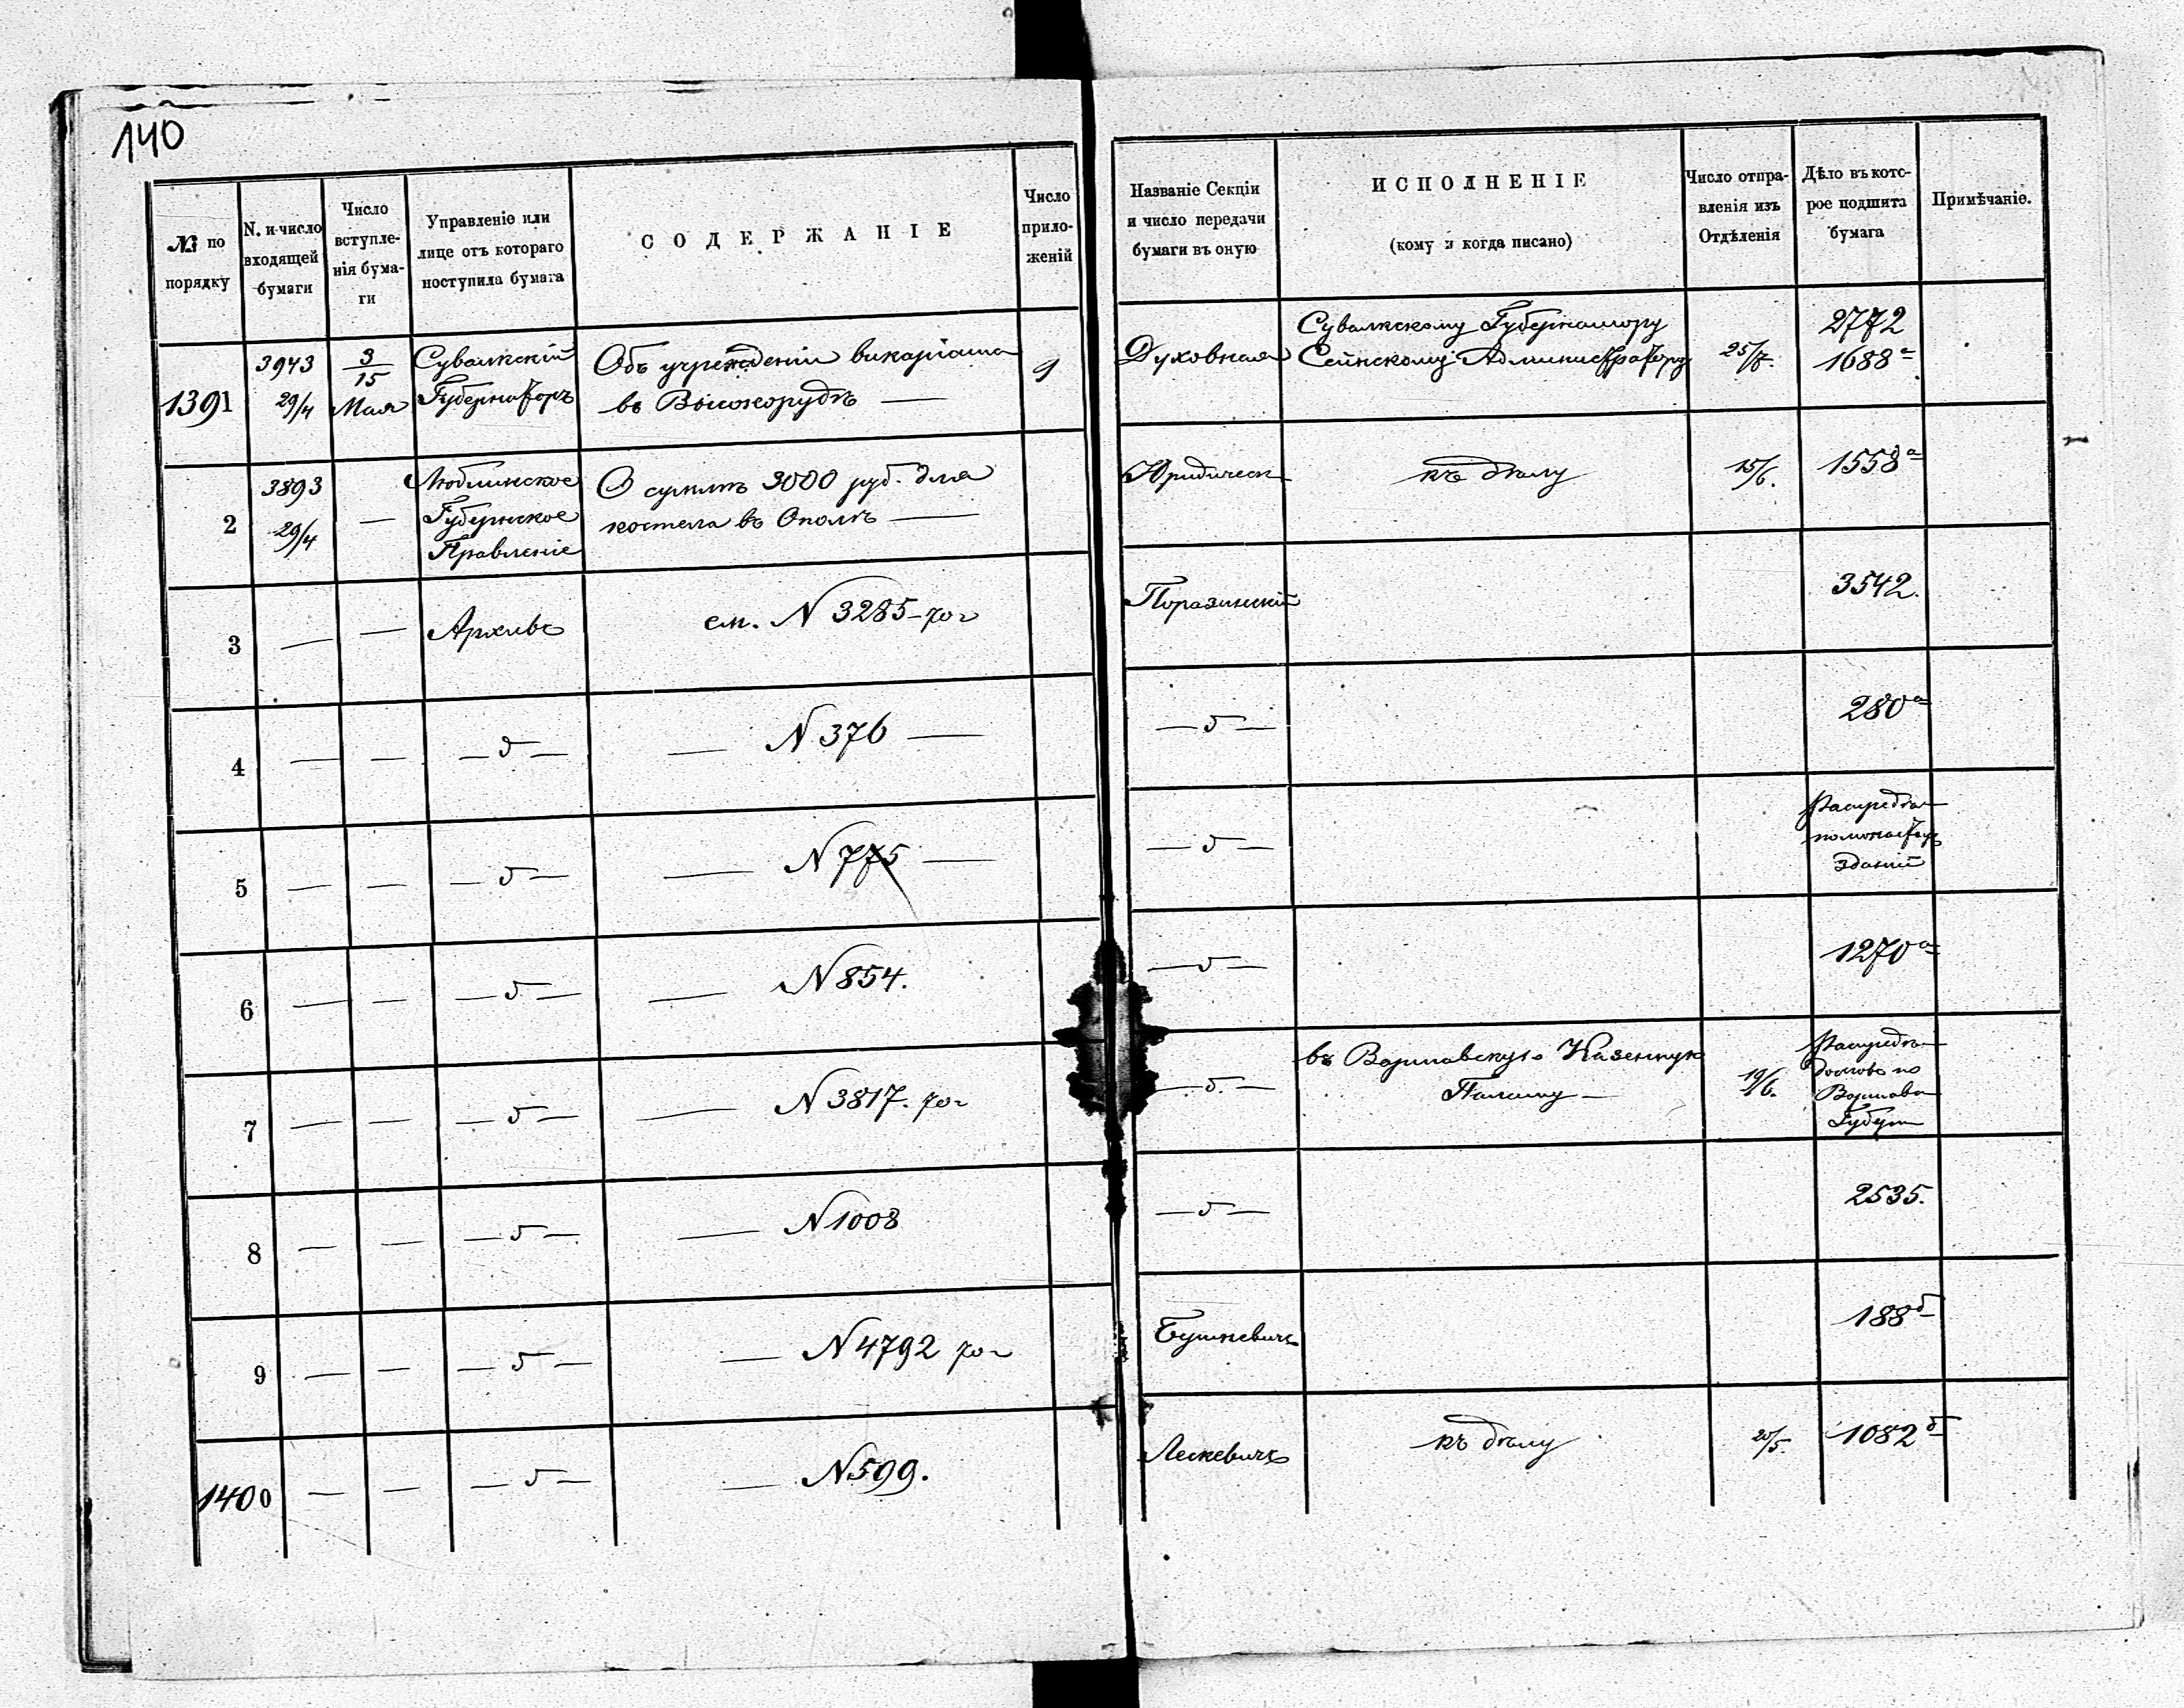 140
№ по порядку
N. и число входящей бумаги
Число вступленія бумаги
Управленіе или лице отъ котораго поступила бумага
СОДЕРЖАНІЕ
Число приложеній
Названіе Секціи и число передачи бумаги въ оную
ИСПОЛНЕНІЕ
(кому и когда писано)
Число отправленія изъ Отдѣленія
Дѣло въ которое подшита бумага
Примѣчаніе.
1391
3943
29/4
3/15
Мая
Сувалкскій
Губернаторъ
Объ учрежденіи викаріата
въ Высокорудѣ —
9
Духовная
Сувалкскому Губернатору
Сейнскому Администратору
25/7.
2772
1688а
2
3893
29/4
—
Люблинское
Губернское
Правленіе
О суммѣ 3000 руб. для
костела въ Ополѣ —
Юридическ
къ дѣлу
15/6.
1558а
3
— —
Архивъ
см. N 3285
Поразинскій
3542.
4
— —
— д —
— N 376 —
— д —
280а
5
— —
— д —
— N 775 —
— д —
Распредѣл
помонастыр
зданій
6
— —
— д —
— N 854.
— д —
1270а
7
— —
— д —
— N 3817.
— д —
въ Варшавскую Казенную
Палату —
19/6.
Распредѣл
домовъ по
Варшавс
Губерн
8
— —
— д —
— N 1008
— д —
2535.
9
— —
— д —
— N 4792
188б
1400
— —
— д —
— N 599.
Лескевичъ
къ дѣлу
20/5.
1082б